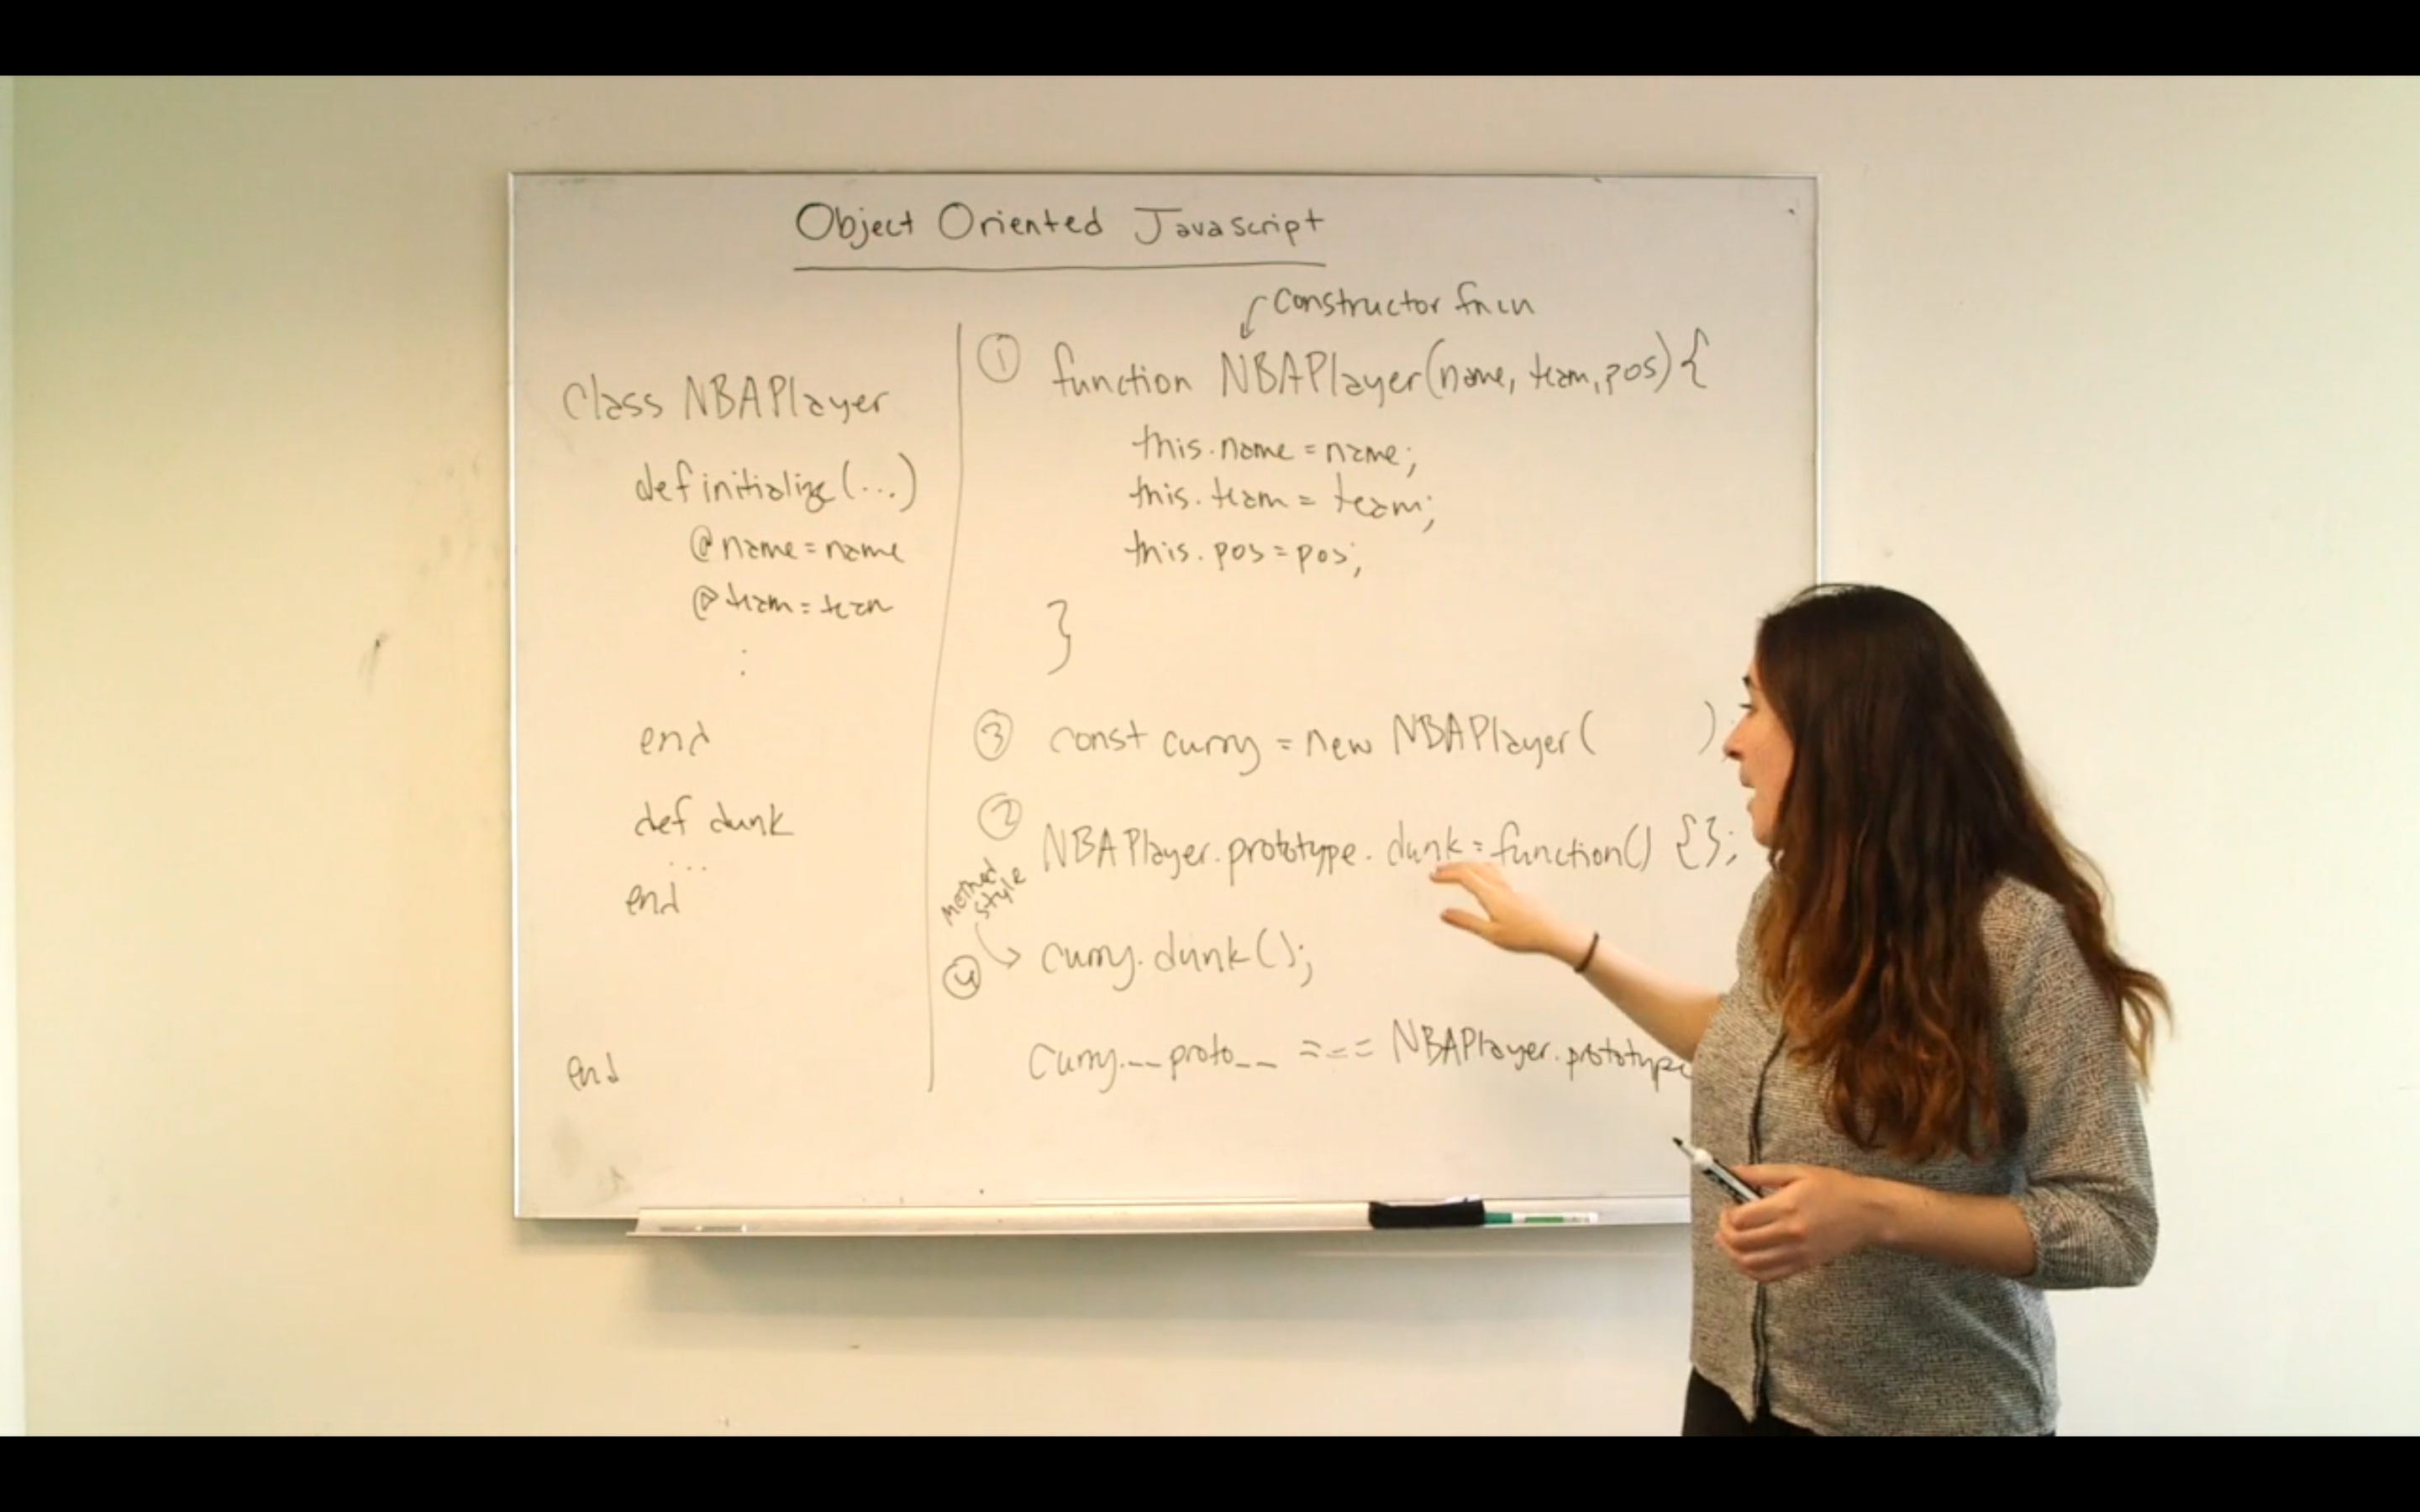 Object Oriented Javascript
class NBAPlayer
def initialize(...)
@name = name
@team = team
:
end
def dunk
...
end
end
constructor fncn
① function NBAPlayer(name, team, pos) {
this.name = name;
this.team = team;
this.pos = pos;
}
③ const curry = new NBAPlayer( );
② NBAPlayer.prototype.dunk = function() {};
method
style
④ curry.dunk();
curry.__proto__ === NBAPlayer.prototype